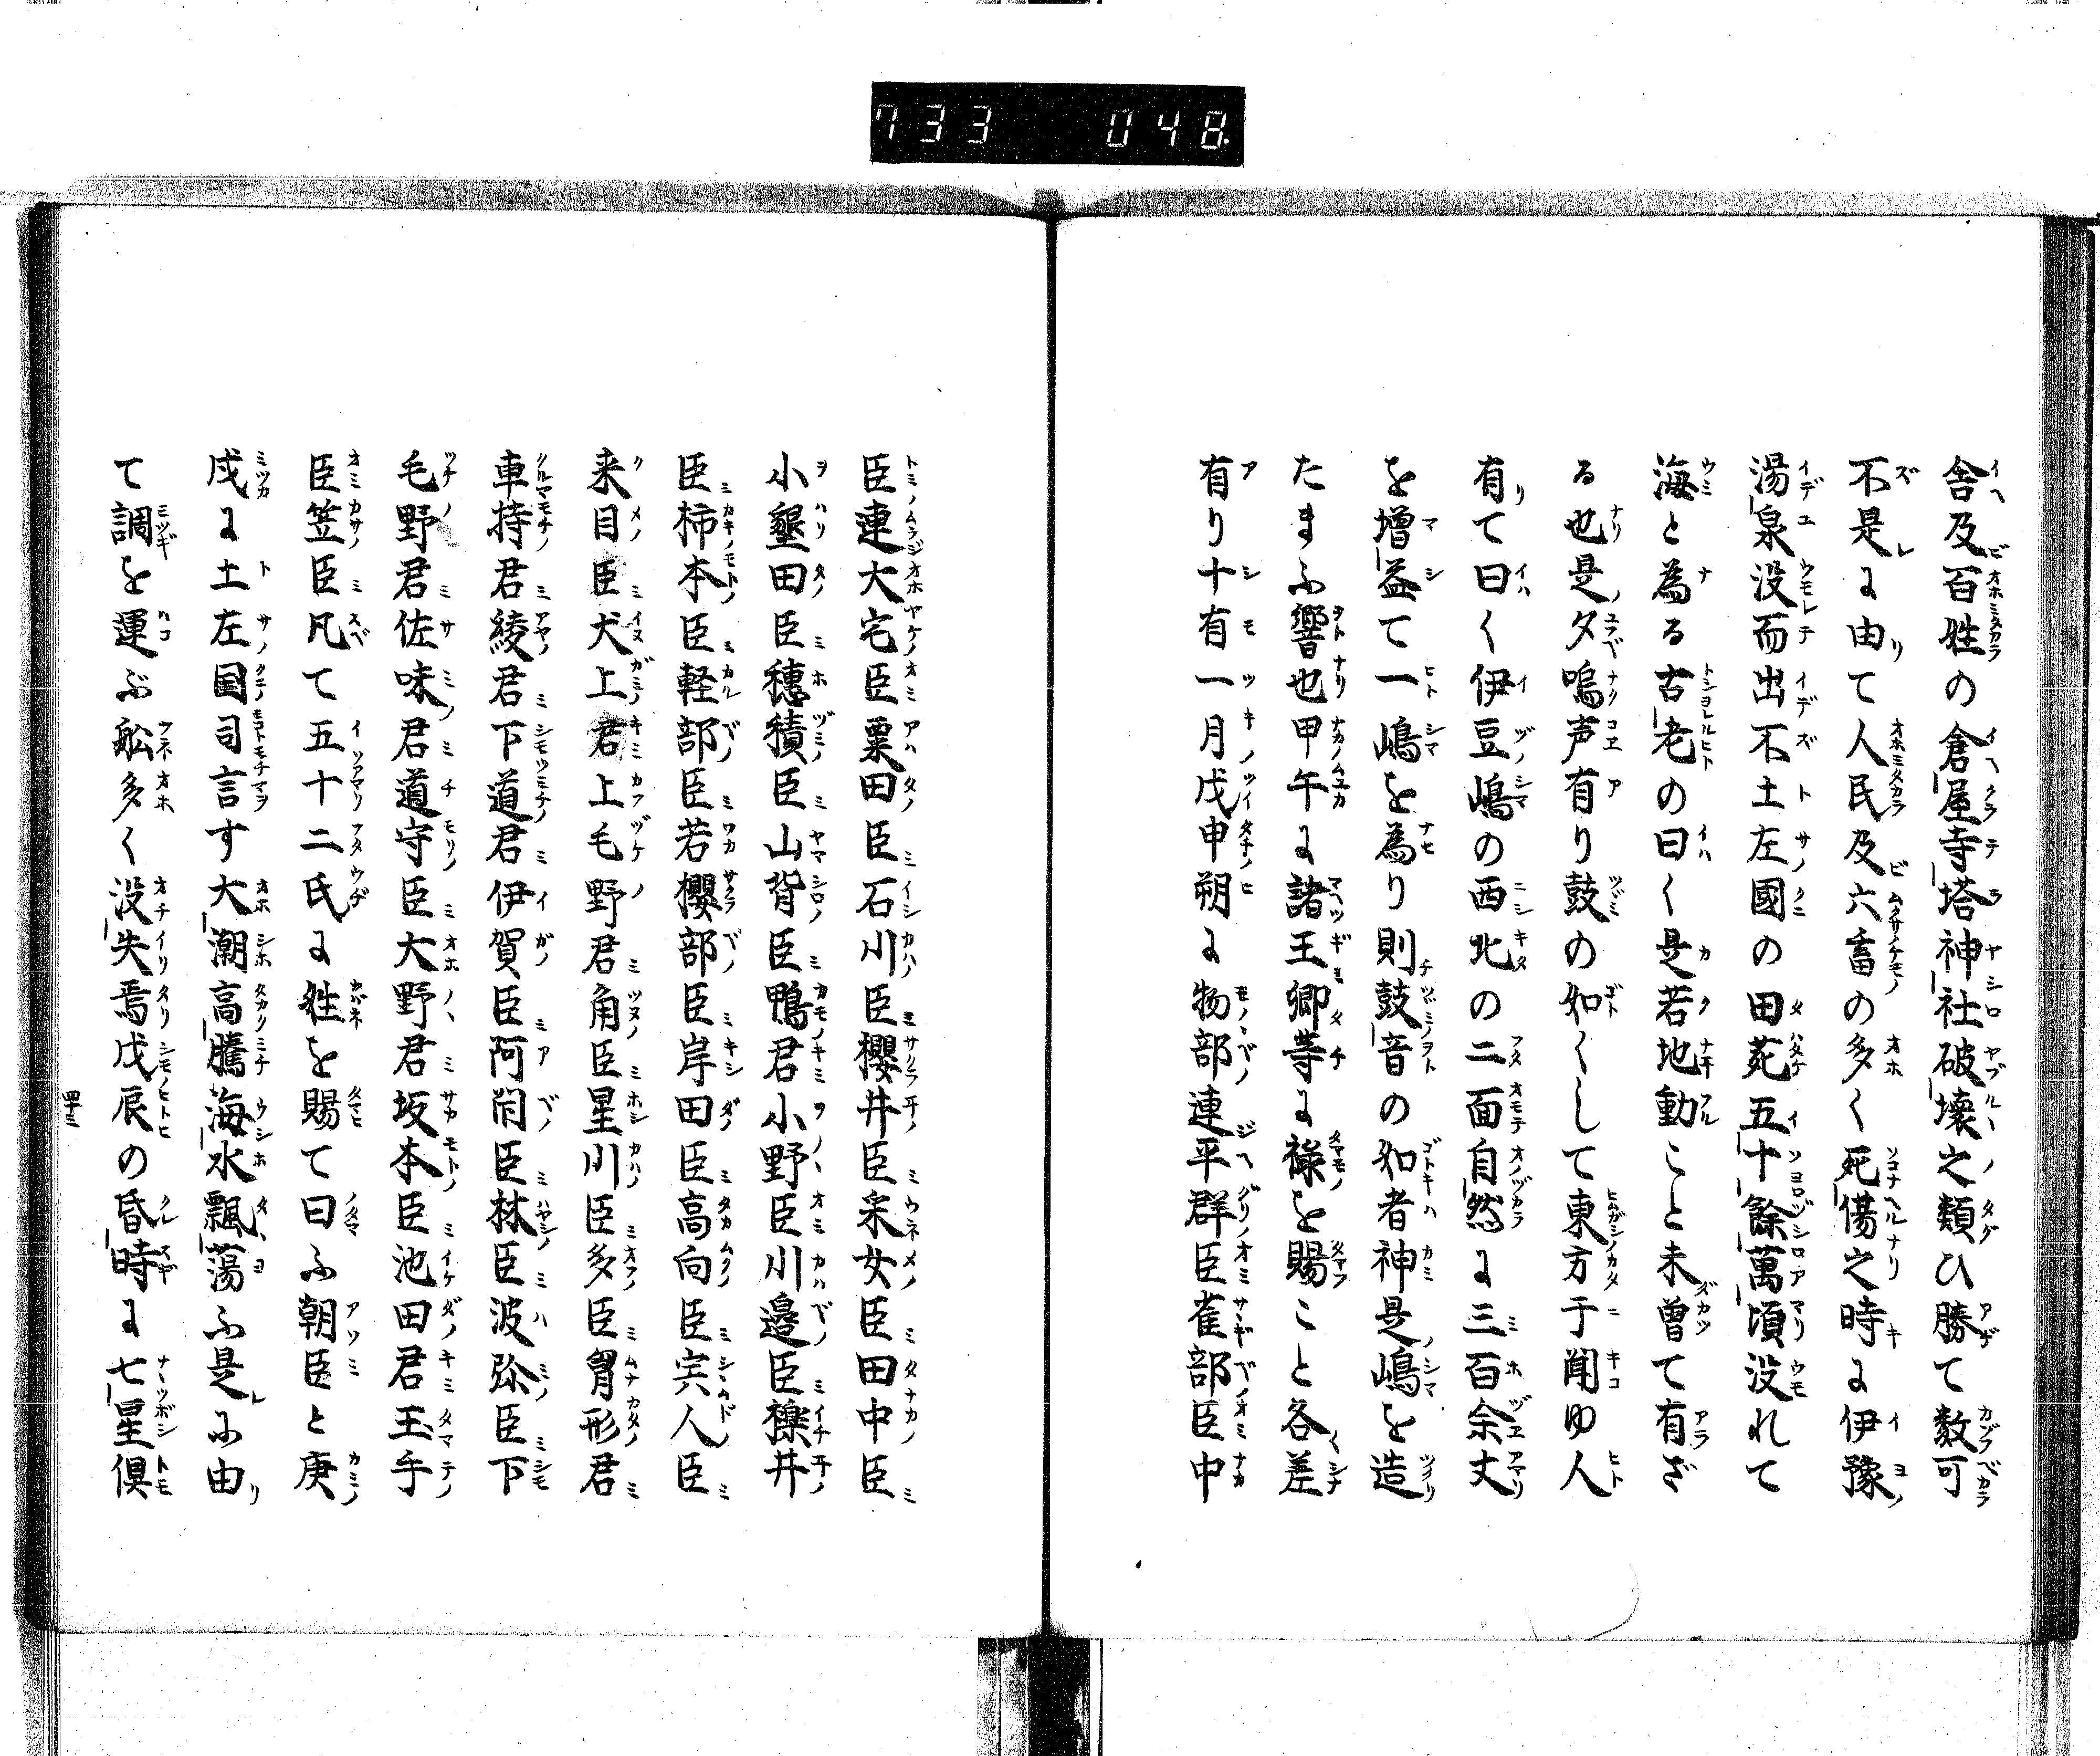 733 048
舎及百姓の倉屋寺塔神社破壊之類ひ勝て数可
不是に由て人民及六畜の多く死傷之時に伊豫
湯泉没而出不土左國の田菀五十餘萬頃没れて
海と為る古老の曰く是若地動こと未曽て有ざ
る也是夕鳴声有り鼓の如くして東方于聞ゆ人
有て曰く伊豆嶋の西北の二面自然に三百余丈
を増益て一嶋を為り則鼓音の如者神是嶋を造
たまふ響也甲午に諸王卿等に禄を賜こと各差
有り十有一月戊申朔に物部連平群臣雀部臣中
臣連大宅臣粟田臣石川臣櫻井臣采女臣田中臣
小墾田臣穗積臣山背臣鴨君小野臣川邉臣櫟井
臣柿本臣軽部臣若櫻部臣岸田臣高向臣宍人臣
来目臣犬上君上毛野君角臣星川臣多臣胷形君
車持君綾君下道君伊賀臣阿閇臣林臣波弥臣下
毛野君佐味君道守臣大野君坂本臣池田君玉手
臣笠臣凡て五十二氏に姓を賜て曰ふ朝臣と庚
戌に土左国司言す大潮高騰海水飄蕩ふ是に由
て調を運ぶ舩多く没失焉戊辰の昏時に七星倶
四十三